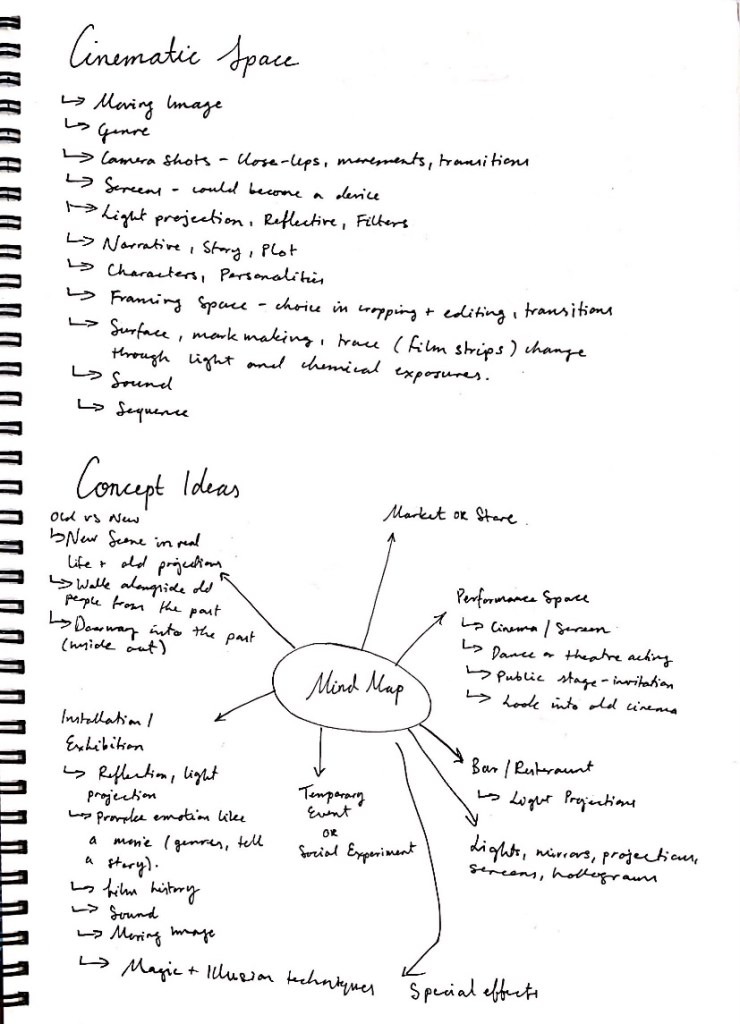 Cinematic Space
↳ Moving Image
↳ Genre
↳ Camera Shots - Close-ups, movements, transitions
↳ Screens - could become a device
↳ Light projection, Reflective, Filters
↳ Narrative, Story, Plot
↳ Characters, Personalities
↳ Framing Space - choice in cropping + editing, transitions
↳ Surface, mark making, trace (film strips) change
through light and chemical exposures.
↳ Sound
↳ Sequence
Concept Ideas
Old vs New
↳ New Scene in real
life + old projections
↳ Walk alongside old
people from the past
↳ Doorway into the past
(inside out)
Market or Store
Performance Space
↳ Cinema / Screen
↳ Dance or theatre acting
↳ Public stage - invitation
↳ Look into old cinema
Mind Map
Installation /
Exhibition
↳ Reflection, light
projection
↳ Provoke emotion like
a movie (genres, tell
a story).
↳ Film history
↳ Sound
↳ Moving Image
↳ Magic + Illusion techniques
Temporary
Event
or
Social Experiment
Bar / Resteraunt
↳ Light Projections
Lights, mirrors, projections,
screens, hollograms
Special effects